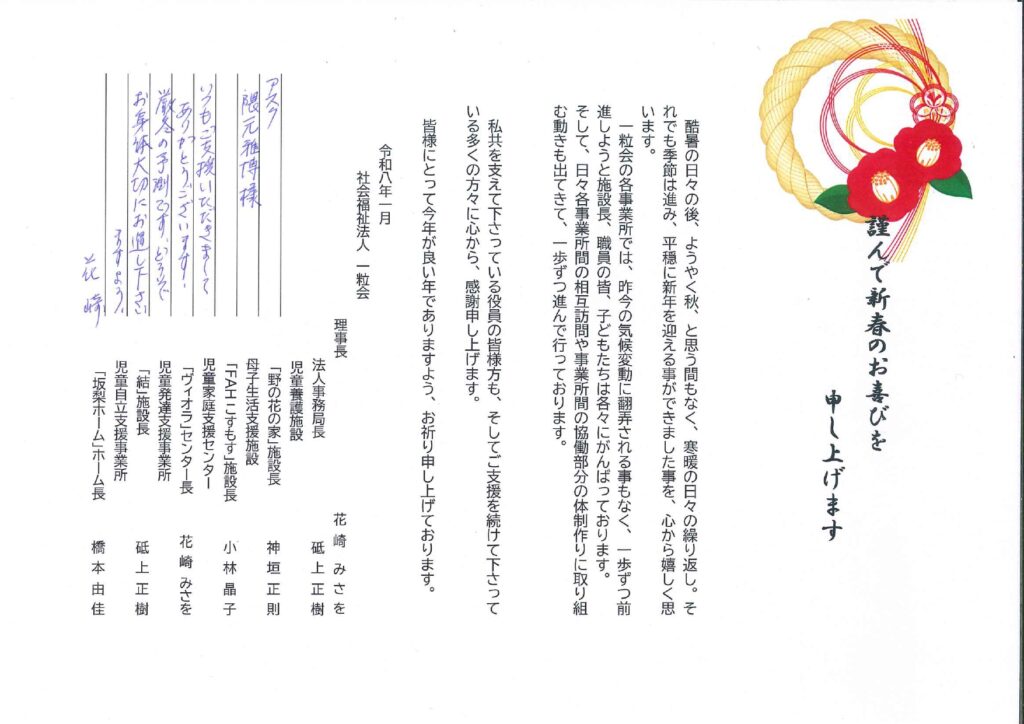 謹んで新春のお喜びを
申し上げます
酷暑の日々の後、ようやく秋、と思う間もなく、寒暖の日々の繰り返し。そ
れでも季節は進み、平穏に新年を迎える事ができました事を、心から嬉しく思
います。
一粒会の各事業所では、昨今の気候変動に翻弄される事もなく、一歩ずつ前
進しようと施設長、職員の皆、子どもたちは各々にがんばっております。
そして、日々各事業所間の相互訪問や事業所間の協働部分の体制作りに取り組
む動きも出てきて、一歩ずつ進んで行っております。
私共を支えて下さっている役員の皆様方も、そしてご支援を続けて下さって
いる多くの方々に心から、感謝申し上げます。
皆様にとって今年が良い年でありますよう、お祈り申し上げております。
令和八年一月
社会福祉法人 一粒会
理事長 花崎みさを
法人事務局長 砥上正樹
児童養護施設
「野の花の家」施設長 神垣正則
母子生活支援施設
「FAHこすもす」施設長 小林晶子
児童家庭支援センター
「ヴィオラ」センター長 花崎みさを
児童発達支援事業所
「結」施設長 砥上正樹
児童自立支援事業所
「坂梨ホーム」ホーム長 橋本由佳
アスク
隈元雅博様
いつもご支援いただきまして
ありがとうございます!
厳冬の予測です、どうぞ
お身体大切にお過し下さい
ますよう、
花崎